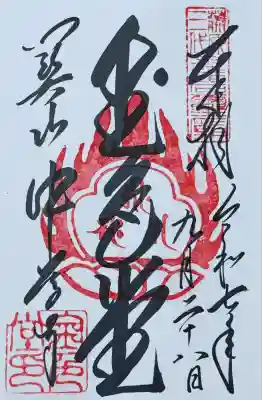 奉拝
令和七年
九月二十八日
金色堂
関山中尊寺
金色堂印